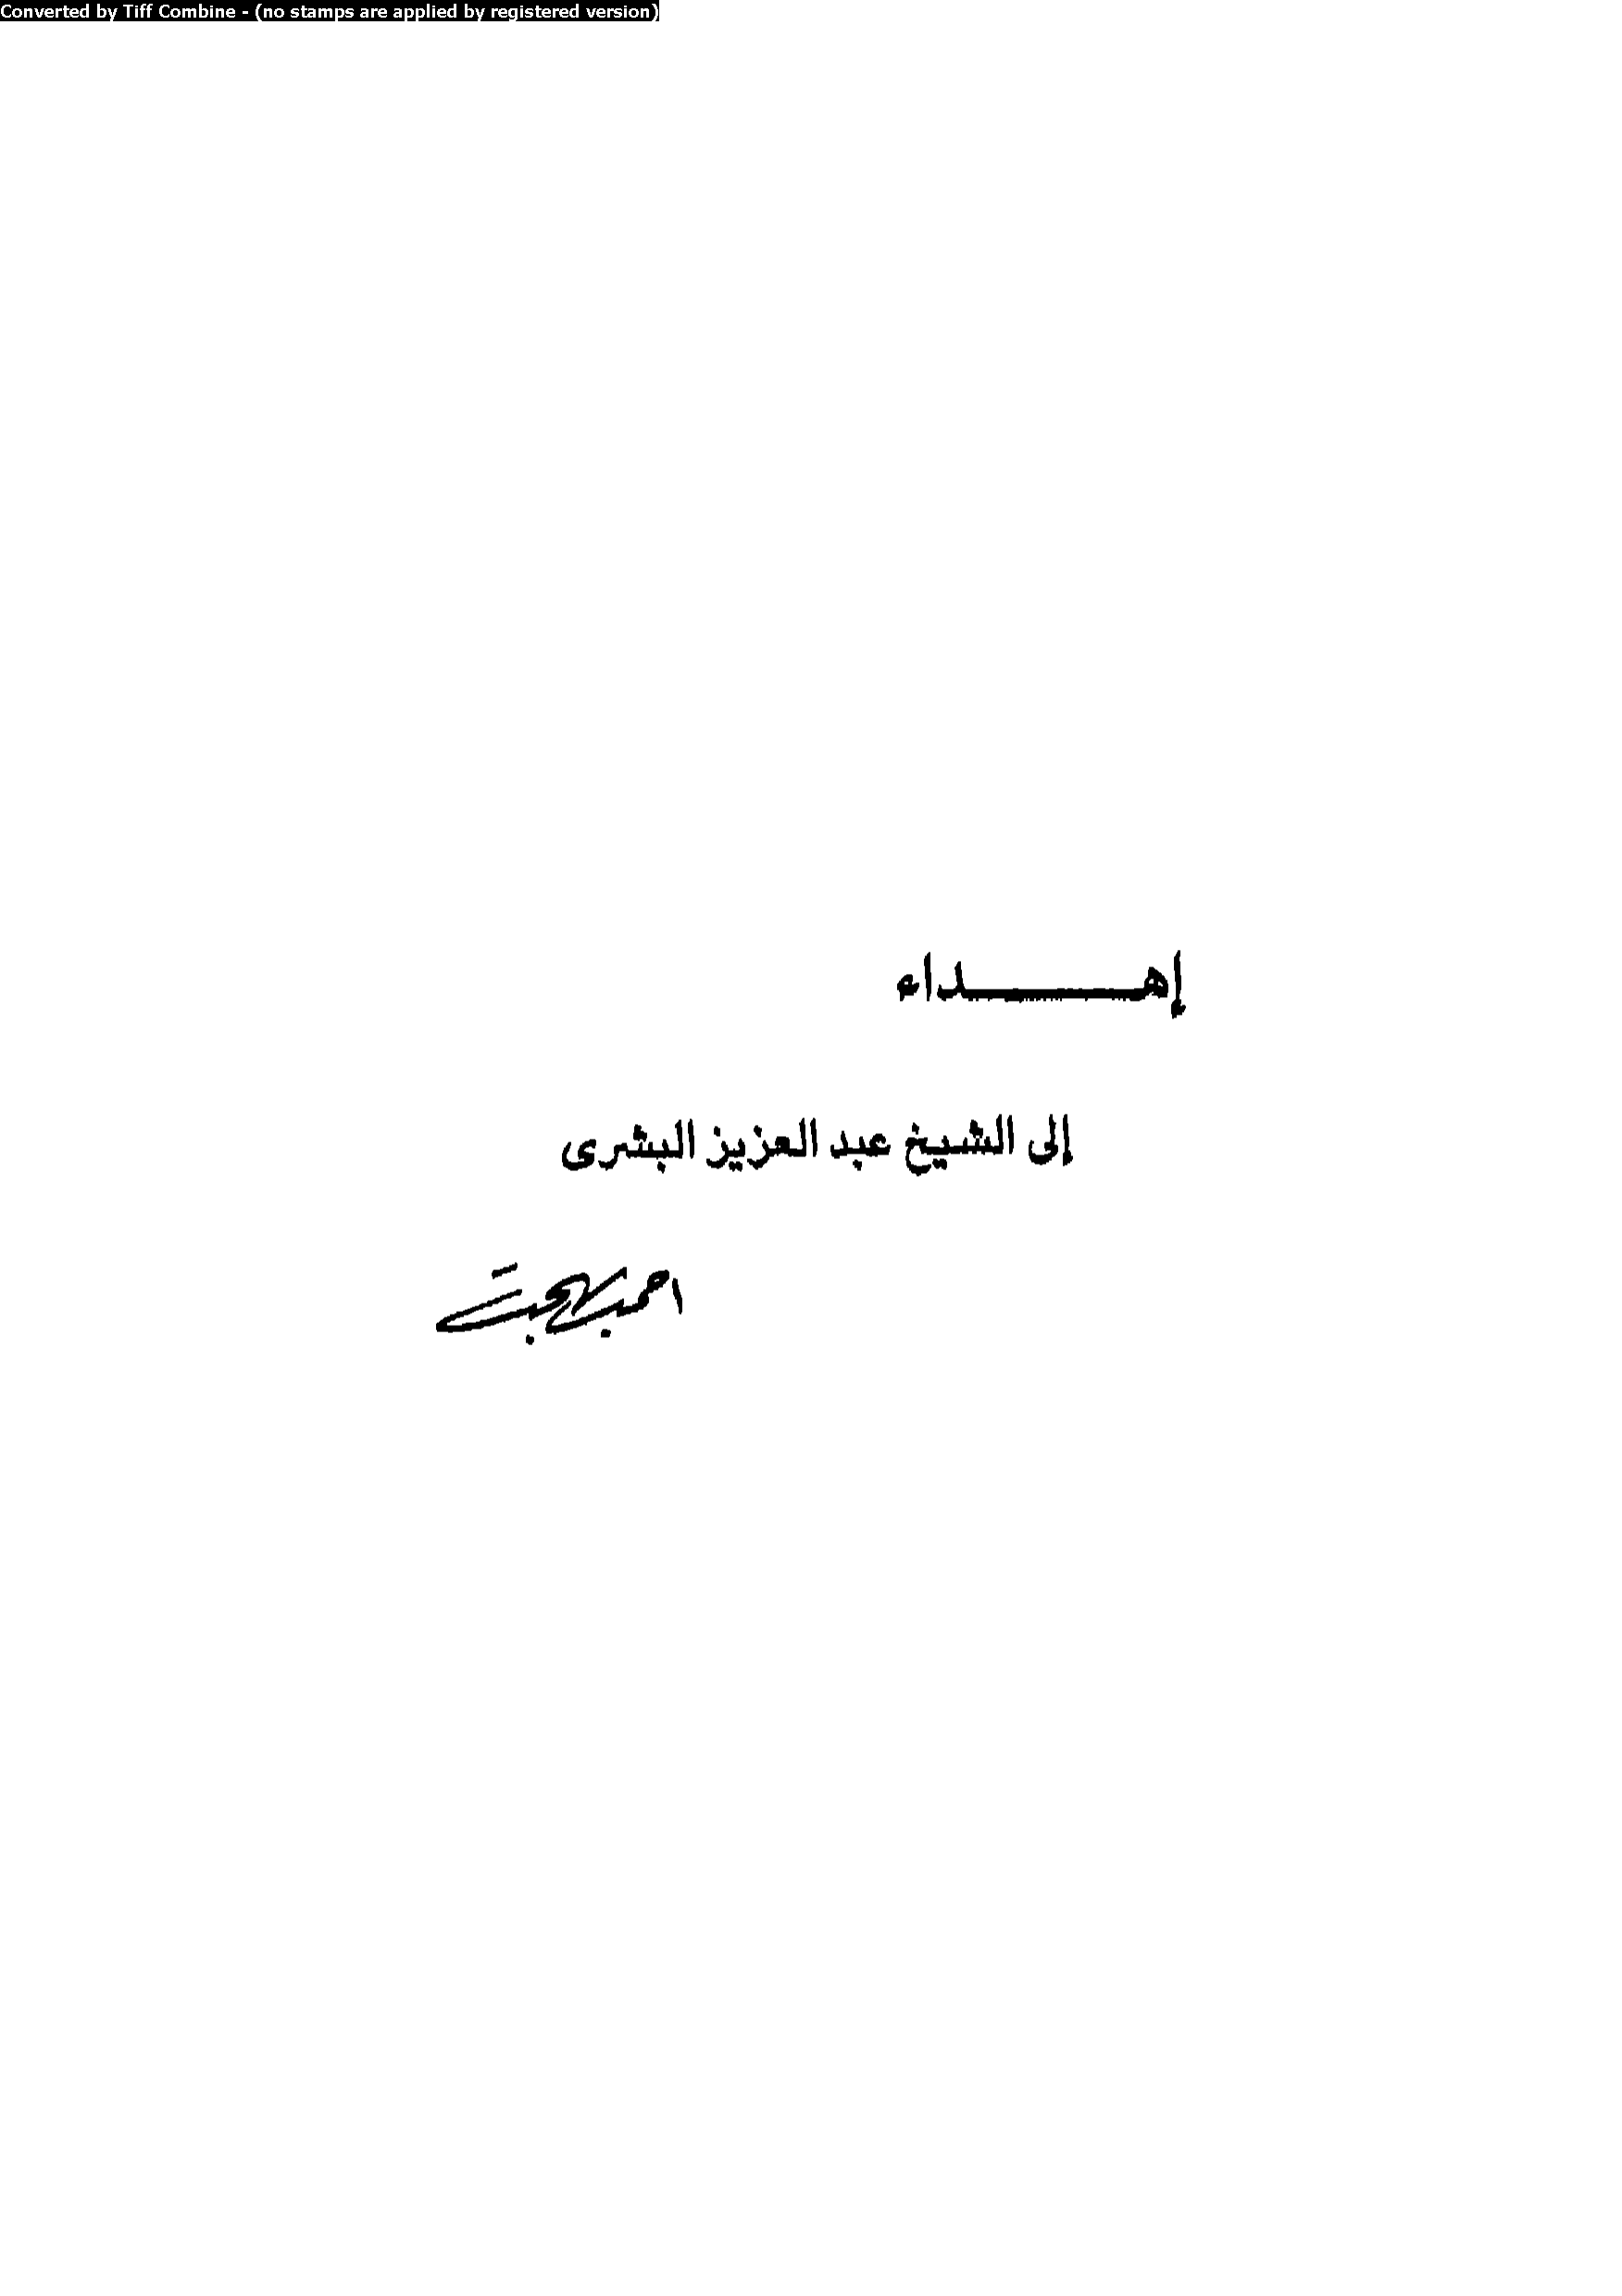 Converted by Tiff Combine - (no stamps are applied by registered version)
إهـــــــــداء
إلى الشيخ عبد العزيز البشرى
احمد بهجت